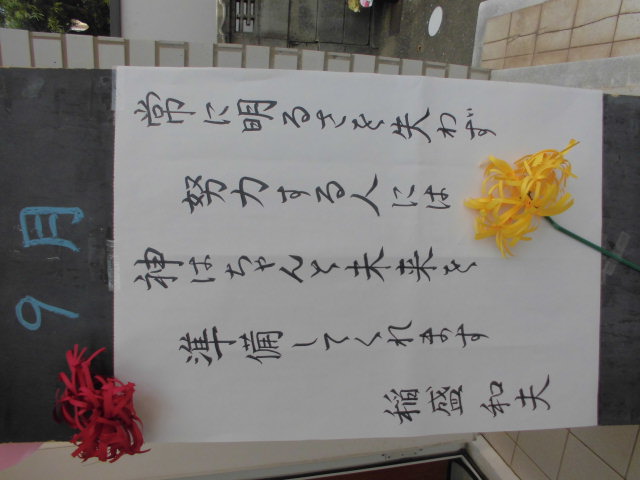 9月
常に明るさを失わず
努力する人には
神はちゃんと未来を
準備してくれます
稲盛和夫